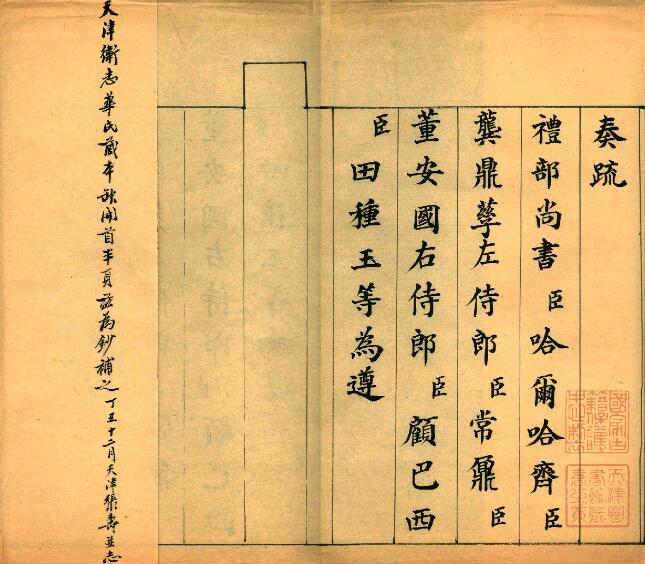 奏疏
禮部尚書臣哈爾哈齊臣
龔鼎孳左侍郎臣常鼐臣
董安國右侍郎臣顧巴西
臣田種玉等為遵
天津衛志華氏藏本缺開首半頁茲為鈔補之丁丑十二月天津張壽並志